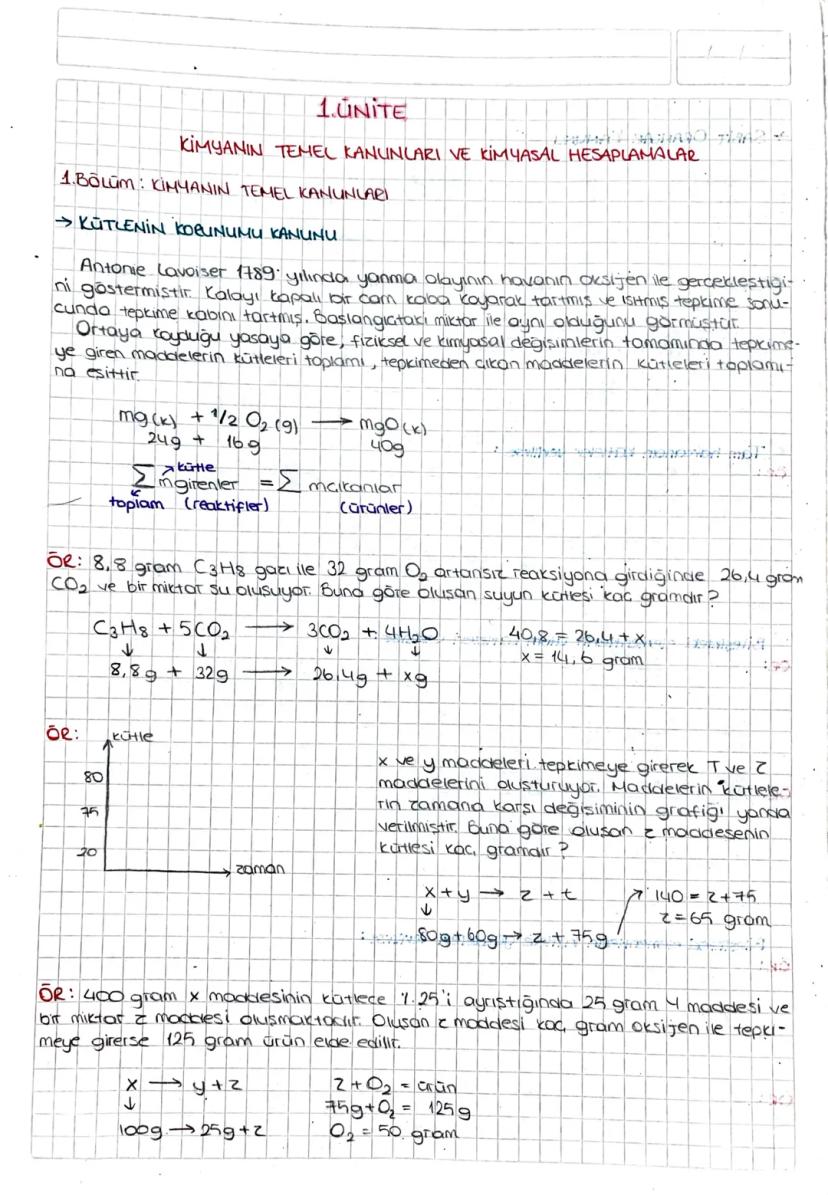 1.ÜNİTE
KİMYANIN TEMEL KANUNLARI VE KİMYASAL HESAPLAMALAR
1.Bölüm: KİMYANIN TEMEL KANUNLARI
→ KÜTLENİN KORUNUMU KANUNU
Antonie Lavoiser 1789 yılında yanma olayının havanın oksijen ile gerçekleştiği-
ni göstermiştir. Kalayı kapalı bir cam kaba koyarak tartmış ve ısıtmış tepkime sonu-
cunda tepkime kabını tartmış. Başlangıçtaki miktar ile aynı olduğunu görmüştür.
Ortaya koyduğu yasaya göre, fiziksel ve kimyasal değişimlerin tamamında tepkime-
ye giren maddelerin kütleleri toplamı, tepkimeden çıkan maddelerin kütleleri toplamı-
na eşittir.
mg(k) + 1/2 O2 (g) → mgO(k)
24g + 16g 40g
↗kütle
∑ mgirenler = ∑ mçıkanlar
toplam (reaktifler) (ürünler)
ÖR: 8,8 gram C3H8 gazı ile 32 gram O2 artansız reaksiyona girdiğinde 26,4 gram
CO2 ve bir miktar su oluşuyor. Buna göre oluşan suyun kütlesi kaç gramdır?
C3H8 + 5CO2 → 3CO2 + 4H2O 40,8 = 26,4 + x
↓ ↓ ↓ ↓ x = 14,6 gram
8,8g + 32g → 26,4g + xg
ÖR: kütle
80
75
20
zaman
x ve y maddeleri tepkimeye girerek T ve Z
maddelerini oluşturuyor. Maddelerin kütlele-
rin zamana karşı değişiminin grafiği yanda
verilmiştir. Buna göre oluşan z maddesenin
kütlesi kaç gramdır?
x + y → z + t ↗ 140 = z + 75
↓ z = 65 gram
80g + 60g → z + 75g
ÖR: 400 gram x maddesinin kütlece %25'i ayrıştığında 25 gram Y maddesi ve
bir miktar z maddesi oluşmaktadır. Oluşan z maddesi kaç gram oksijen ile tepki-
meye girerse 125 gram ürün elde edilir.
x → y + z Z + O2 = ürün
↓ 75g + O2 = 125g
100g → 25g + z O2 = 50 gram